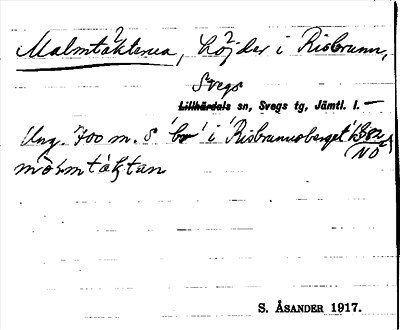 Malmtäkterna, höjder i Risbrunn,
Svegs
Lillhärdals sn, Svegs tg, Jämtl. l. —
Ung. 700 m. S 'br' i 'Risbrunnsberget'
NO
S. ÅSANDER 1917.